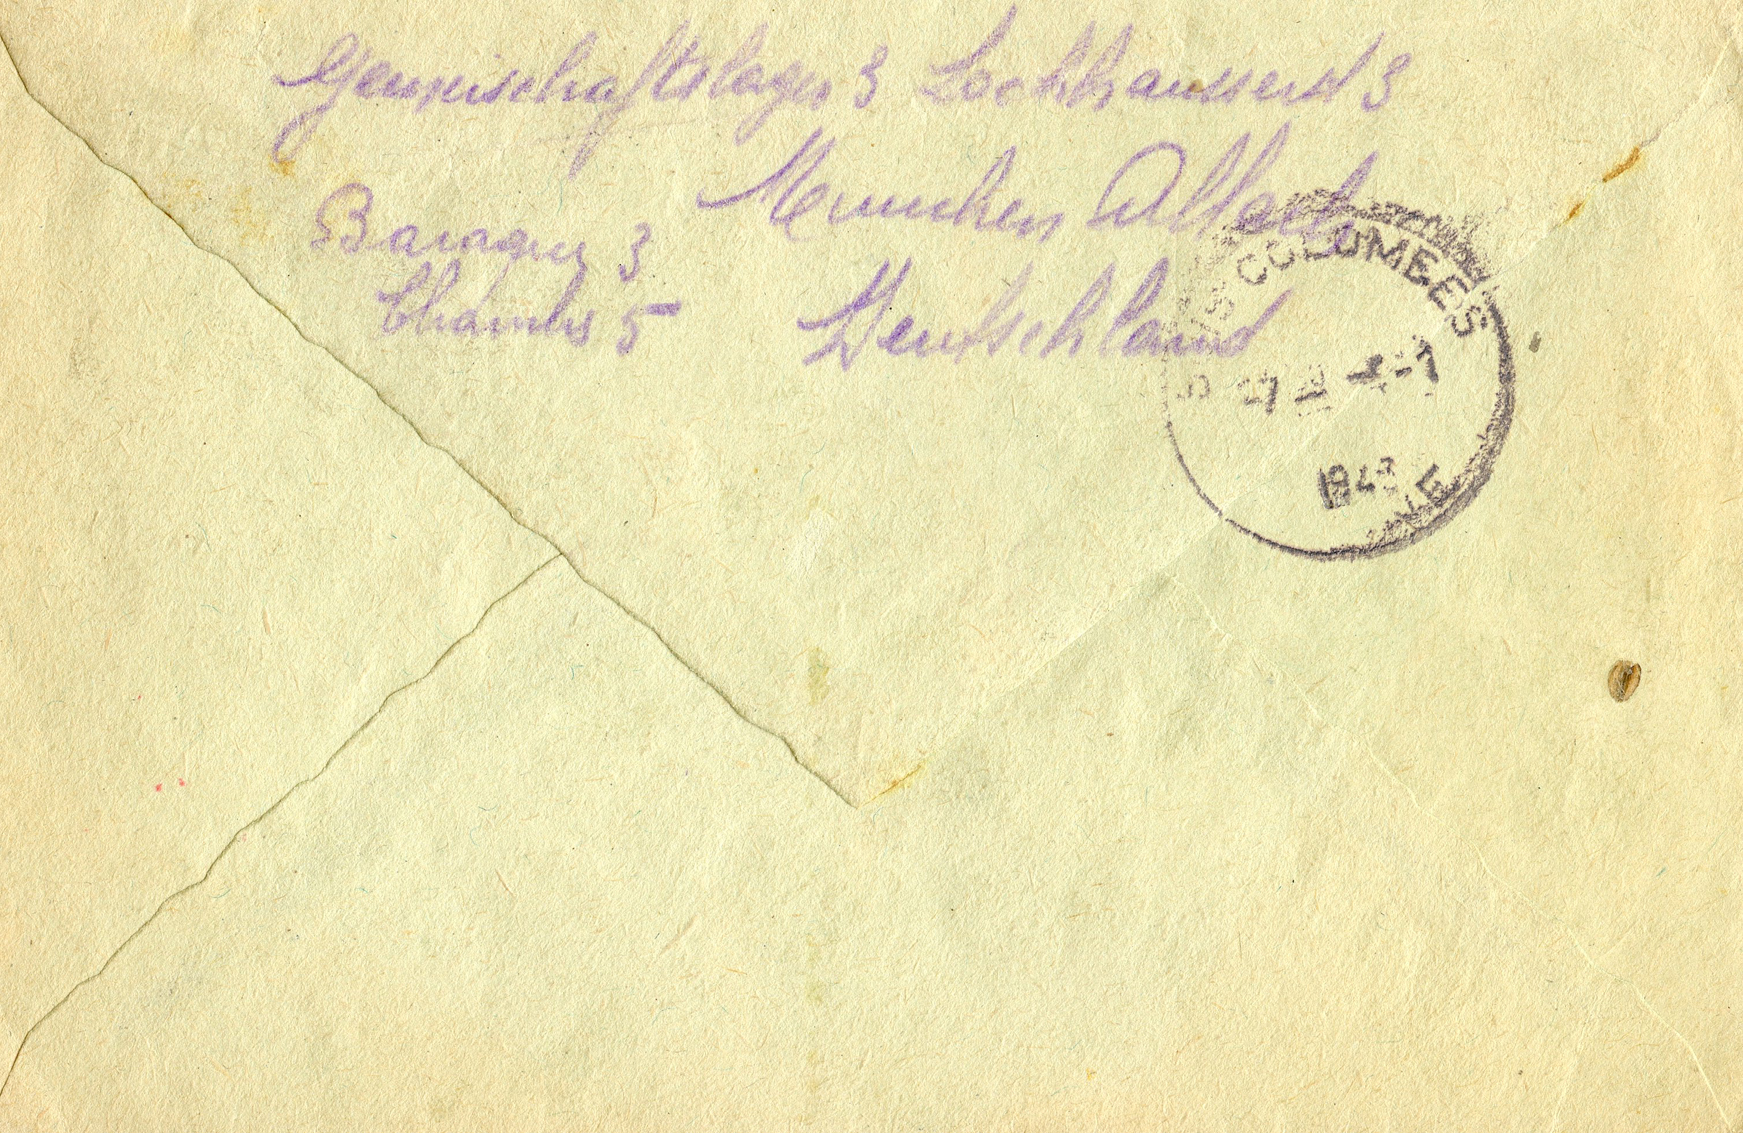 Gemeischaftslager 3 Lochhausserst 3
Munchen Allach
Baraque 3
Chambs 5 Deutschland
COLOMBES
1943